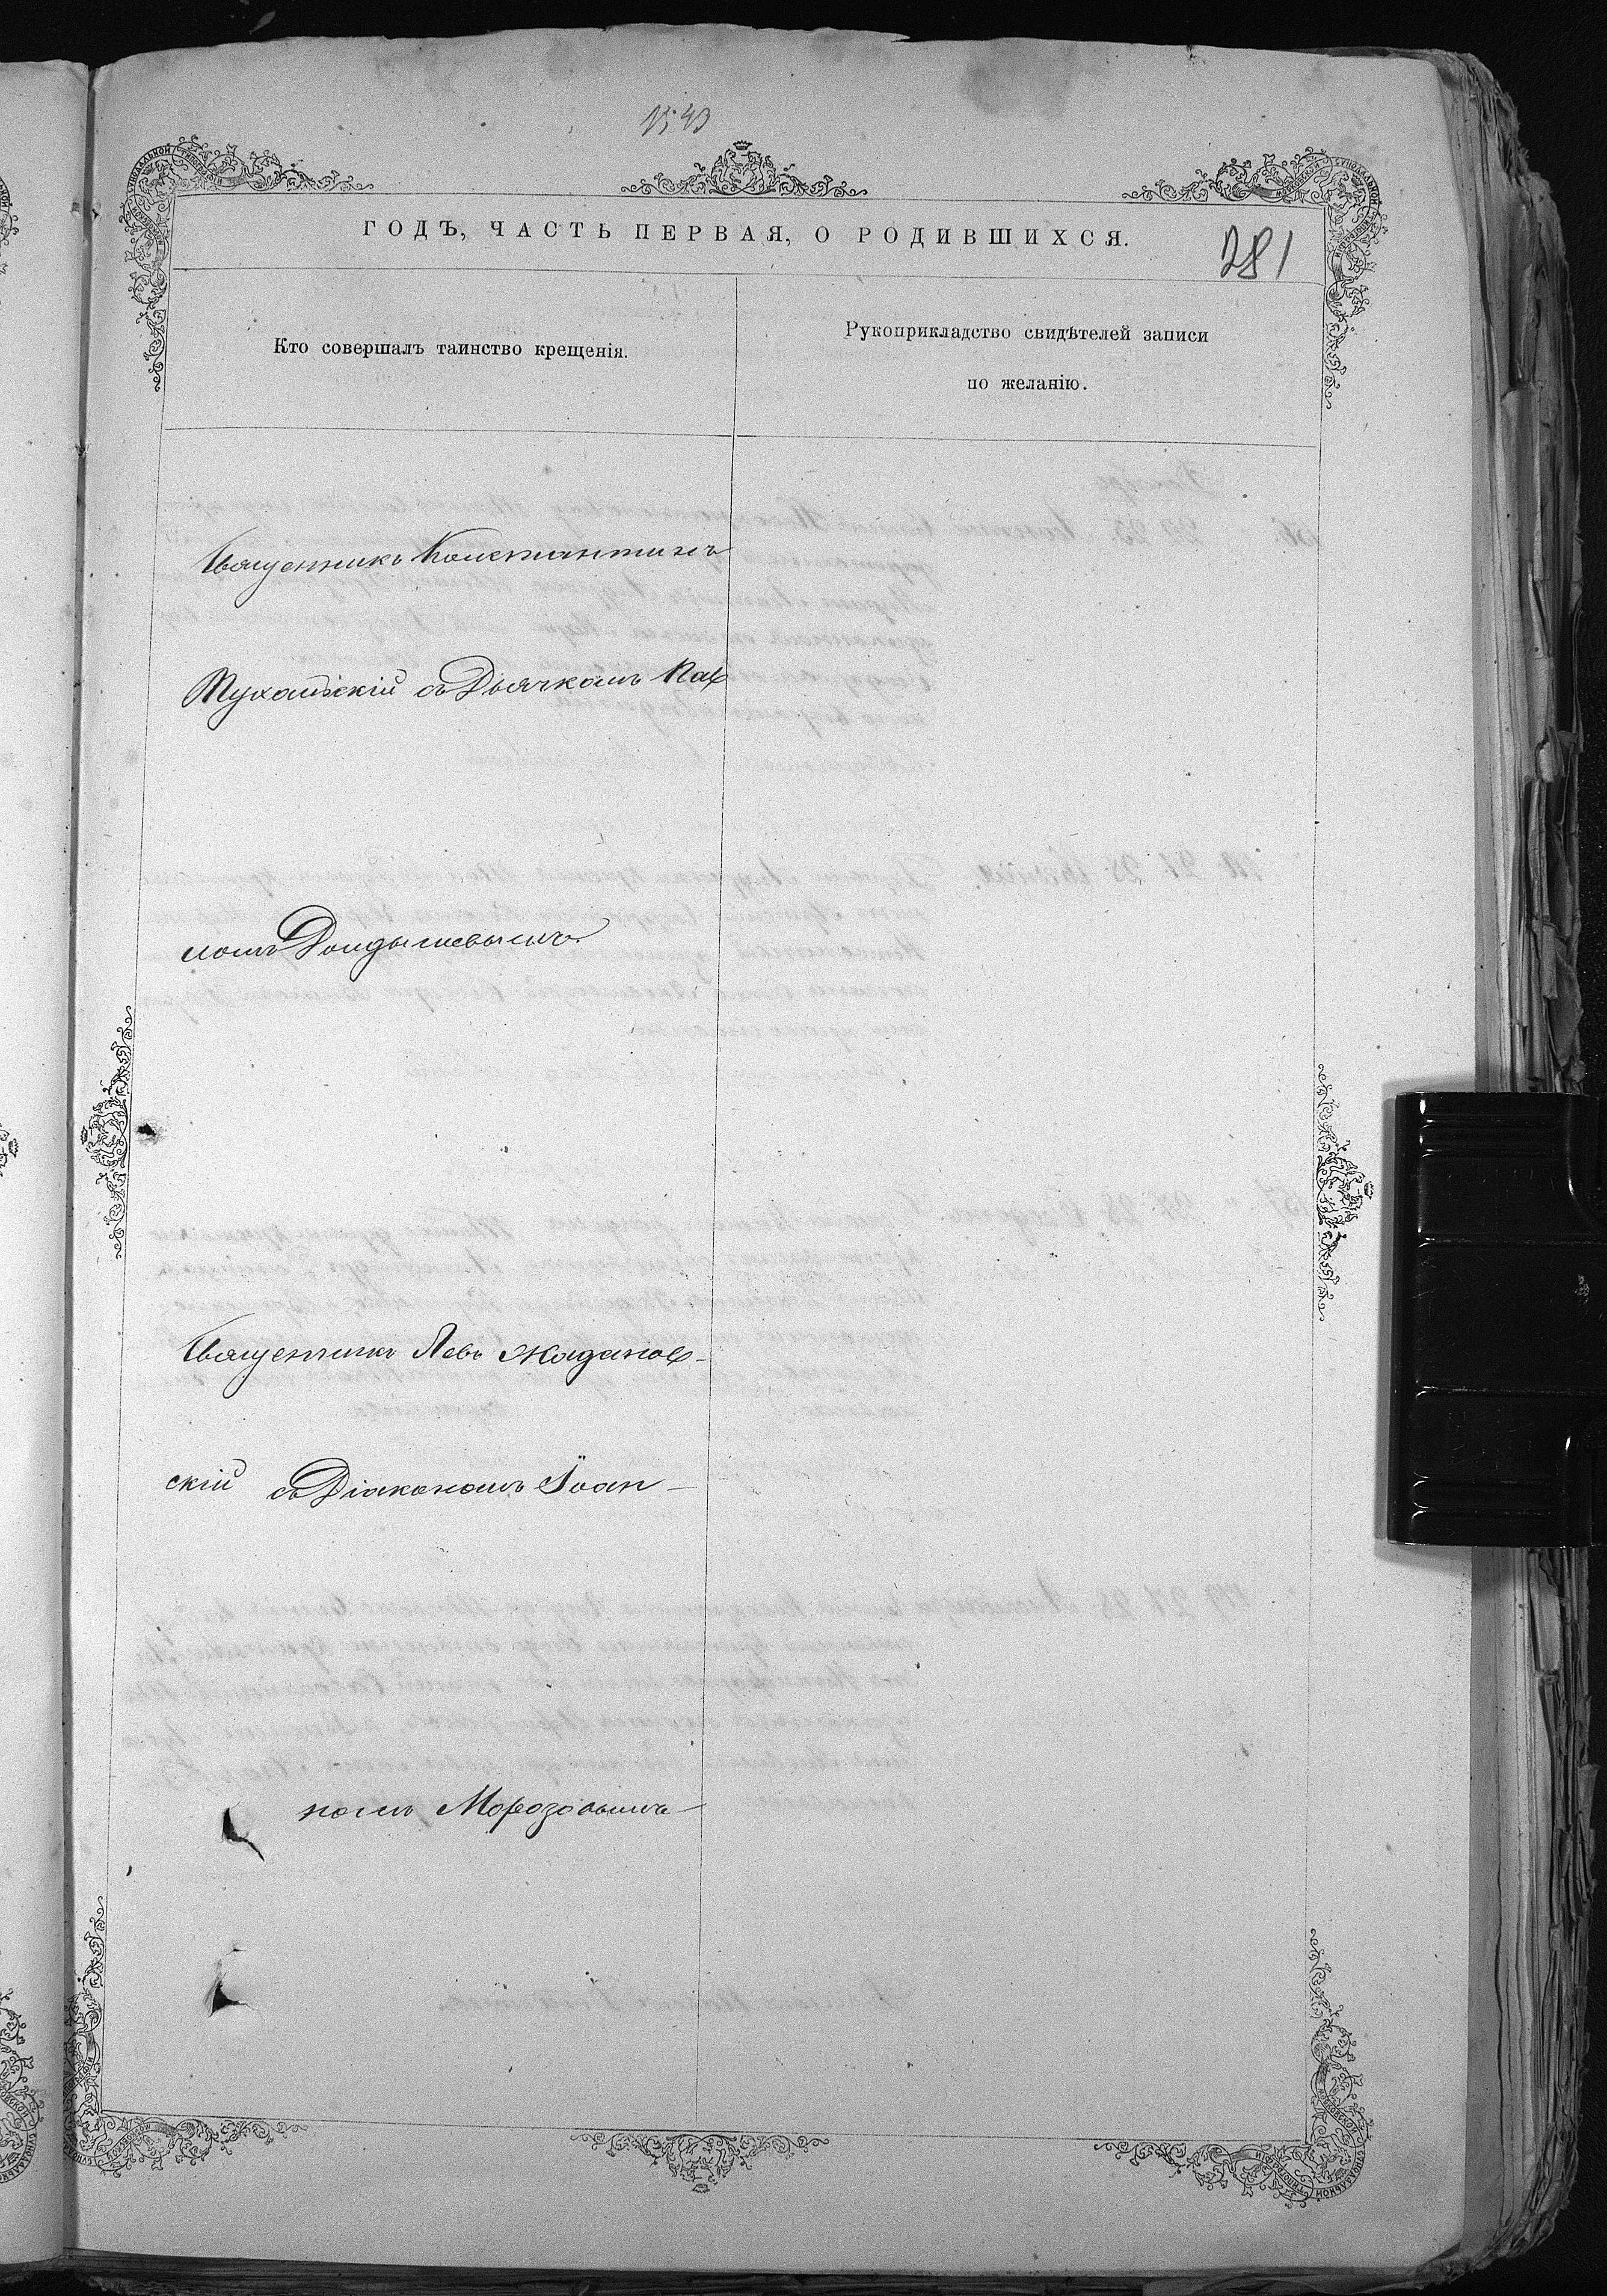 1543
ГОДЪ, ЧАСТЬ ПЕРВАЯ, О РОДИВШИХСЯ.
281
Кто совершалъ таинство крещенія.
Рукоприкладство свидѣтелей записи
по желанію.
Священникъ Константинъ
съ Дьячкомъ Пав
ломъ
Священникъ Левъ Жаданов-
скій съ Діакономъ Іоан-
номъ Морозовымъ